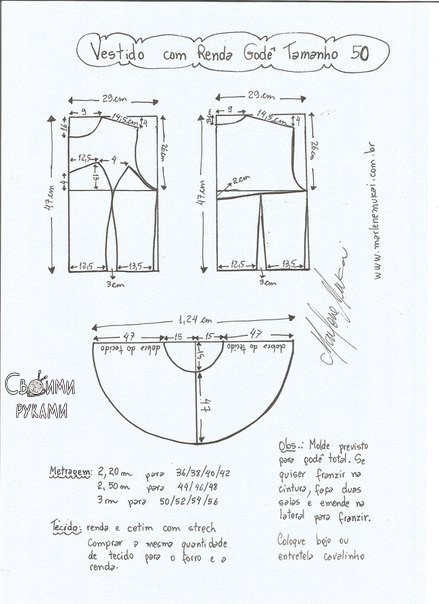 Vestido com Renda Godê Tamanho 50
29cm
9
14,5cm
4
26cm
12,5
4
13
4
47cm
12,5
13,5
3cm
29cm
9
3
14,5cm
4
26cm
2cm
47cm
12,5
13,5
3cm
www.marlenemukai.com.br
1,24 cm
47
15
15
47
dobra do tecido
15
dobra do tecido
47
Своими
руками
Metragem: 2,20m para 36/38/40/42
2,50m para 44/46/48
3m para 50/52/54/56
Tecido: renda e cetim com strech
Comprar a mesma quantidade
de tecido para o forro e a
renda.
Obs.: Molde previsto
para godê total. Se
quiser franzir na
cintura, faça duas
saias e emende na
lateral para franzir.
Coloque bojo ou
entretela cavalinho